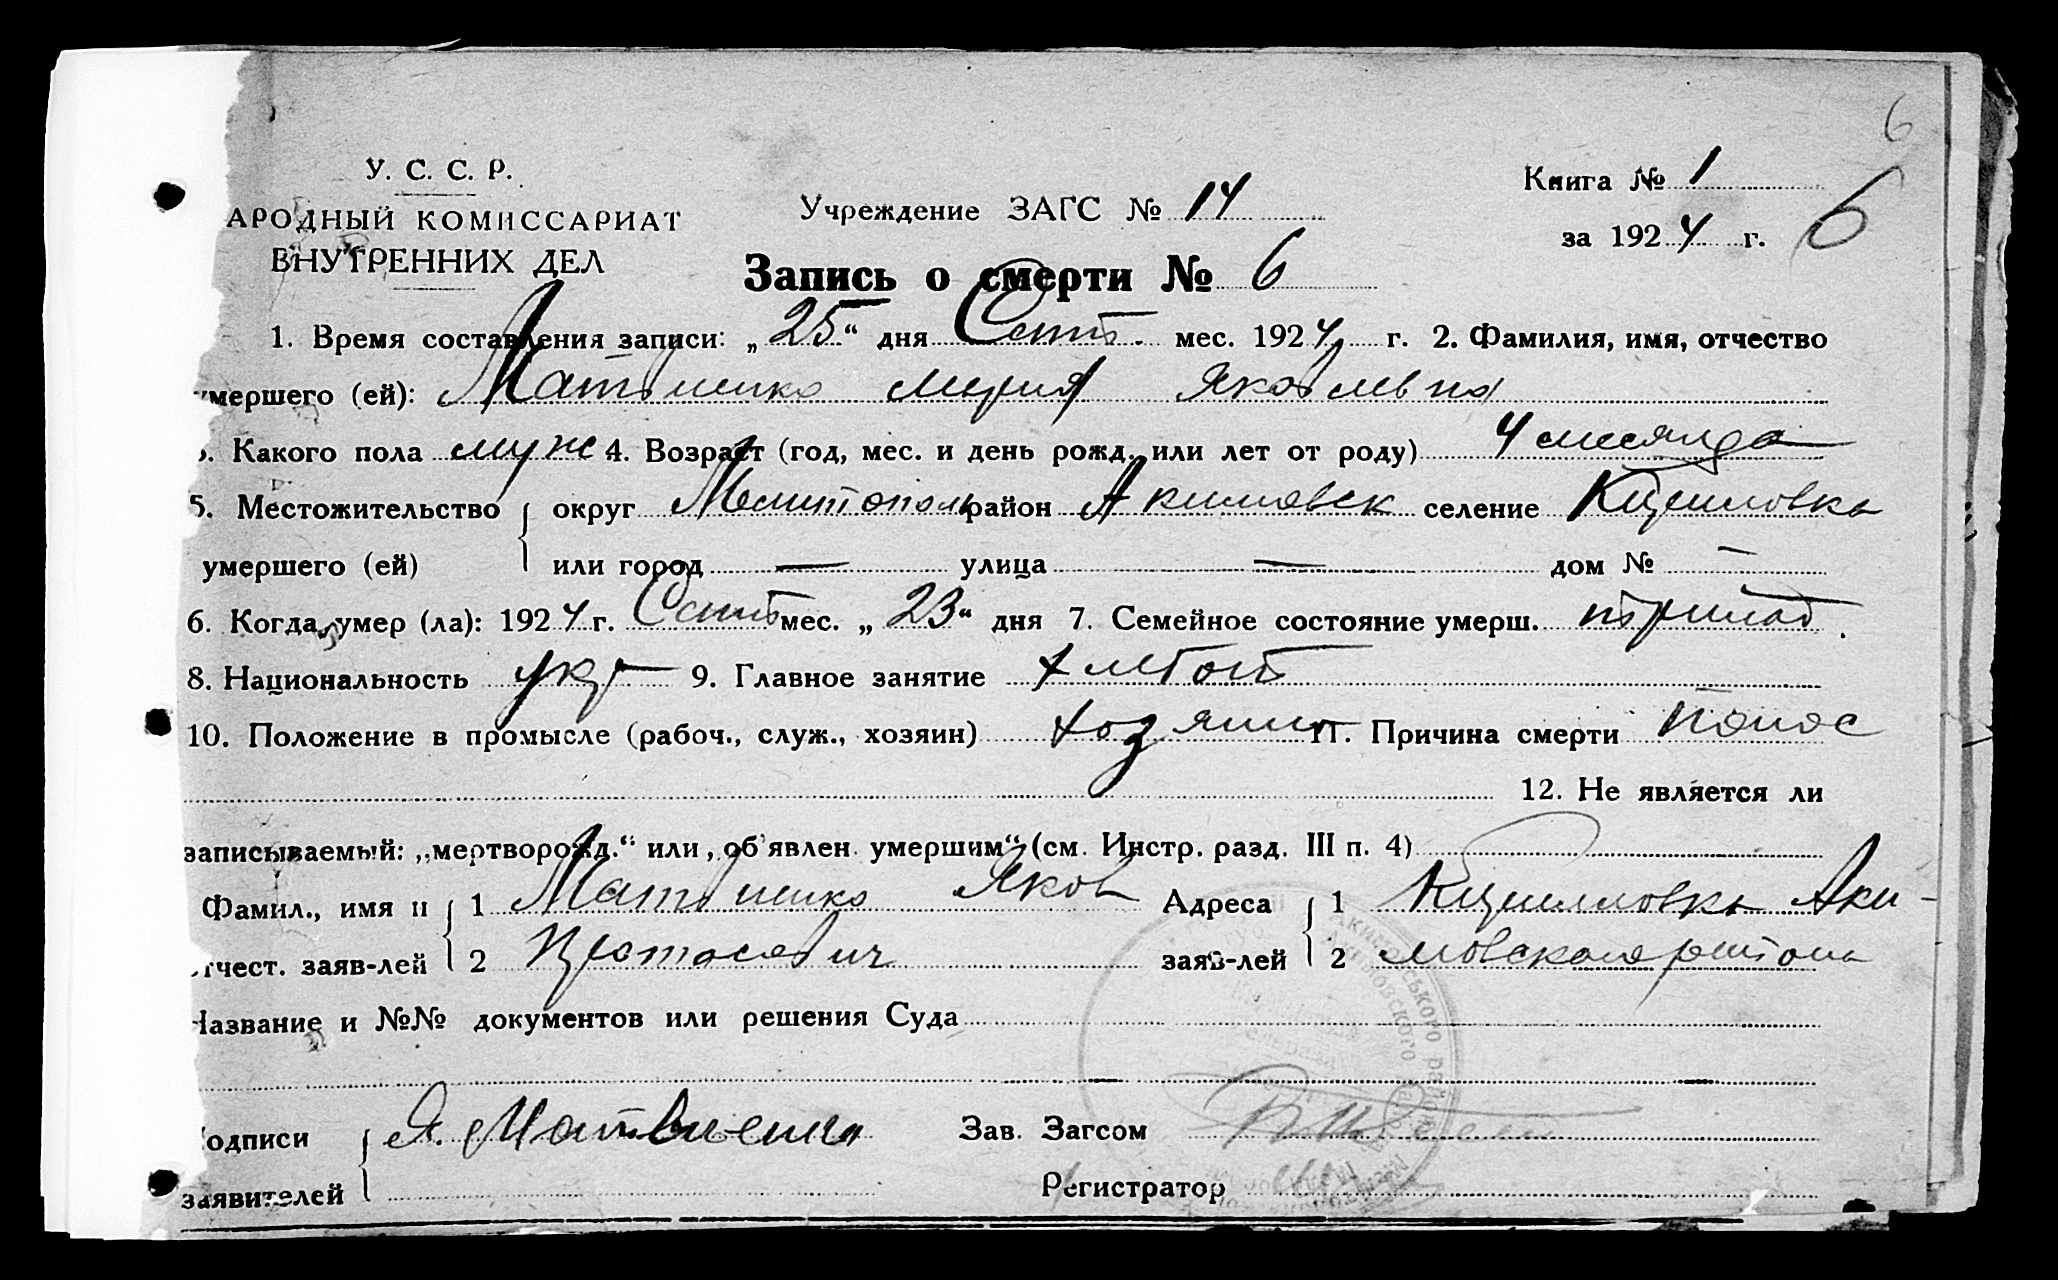 6
У. С. С. Р.
АРОДНЫЙ КОМИССАРИАТ
ВНУТРЕННИХ ДЕЛ
Учреждение ЗАГС № 14
Книга № 1
за 1924 г. 6
Запись о смерти № 6
1. Время составления записи: „25“ дня Сент. мес. 1924 г. 2. Фамилия, имя, отчество
умершего (ей): Матвиенко Мария Яковлевна
3. Какого пола муж 4. Возраст (год, мес. и день рожд. или лет от роду) 4 месяца
5. Местожительство округ Мелитополь район Акимовск селение
умершего (ей) или город — улица — дом № —
6. Когда умер (ла): 1924 г. Сент мес. „23“ дня 7. Семейное состояние умерш.
8. Национальность укр 9. Главное занятие хлебоп
10. Положение в промысле (рабоч., служ., хозяин) хозяин 11. Причина смерти понос
12. Не является ли
записываемый: „мертворожд.“ или „об'явлен умершим“ (см. Инстр. разд. III п. 4)
Фамил., имя и 1 Матвиенко Яков Адреса 1 Аки-
отчест. заяв-лей 2 Протасевич заяв-лей 2 мовского района
Название и №№ документов или решения Суда
Подписи Я. Матвиенко Зав. Загсом
заявителей Регистратор